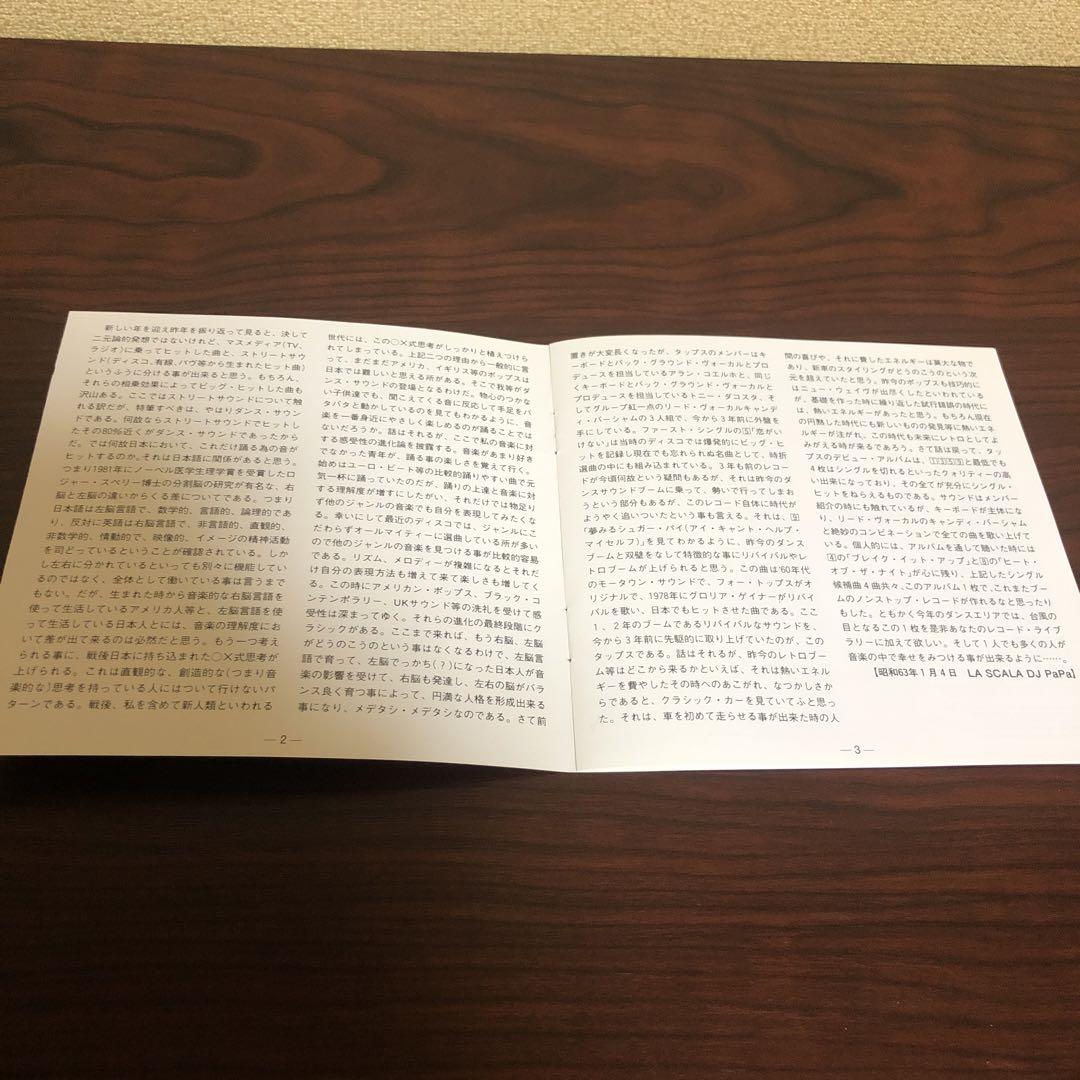 新しい年を迎え昨年を振り返って見ると、決して
二元論的発想ではないけれど、マスメディア(TV、
ラジオ)に乗ってヒットした曲と、ストリートサウ
ンド(ディスコ、有線、パヴ等から生まれたヒット曲)
というふうに分ける事が出来ると思う。もちろん、
それらの相乗効果によってビッグ・ヒットした曲も
沢山ある。ここではストリートサウンドについて触
れる訳だが、特筆すべきは、やはりダンス・サウン
ドである。何故ならストリートサウンドでヒットし
たその80%近くがダンス・サウンドであったから
だ。では何故日本において、これだけ踊る為の音が
ヒットするのか。それは日本語に関係があると思う。
つまり1981年にノーベル医学生理学賞を受賞したロ
ジャー・スペリー博士の分割脳の研究が有名な、右
脳と左脳の違いからくる差についてである。つまり
日本語は左脳言語で、数学的、言語的、論理的であ
り、反対に英語は右脳言語で、非言語的、直観的、
非数学的、情動的で、映像的、イメージの精神活動
を司どっているということが確認されている。しか
し左右に分かれているといっても別々に機能してい
るのではなく、全体として働いている事は言うまで
もない。だが、生まれた時から音楽的な右脳言語を
使って生活しているアメリカ人等と、左脳言語を使
って生活している日本人とには、音楽の理解度にお
いて差が出て来るのは必然だと思う。もう一つ考え
られる事に、戦後日本に持ち込まれた○×式思考が
上げられる。これは直観的な、創造的な(つまり音
楽的な)思考を持っている人にはついて行けないパ
ターンである。戦後、私を含めて新人類といわれる
世代には、この○×式思考がしっかりと植えつけら
れてしまっている。上記二つの理由から一般的に言
って、まだまだアメリカ、イギリス等のポップスは
日本では難しいと思える所がある。そこで我等がダ
ンス・サウンドの登場となるわけだ。物心のつかな
い子供達でも、聞こえてくる音に反応して手足をバ
タバタと動かしているのを見てもわかるように、音
楽を一番身近にやさしく楽しめるのが踊ることでは
ないだろうか。話はそれるが、ここで私の音楽に対
する感受性の進化論を披露する。音楽があまり好き
でなかった青年が、踊る事の楽しさを覚えて行く。
始めはユーロ・ビート等の比較的踊りやすい曲で元
気一杯に踊っていたのだが、踊りの上達と音楽に対
する理解度が増すにしたがい、それだけでは物足り
ず他のジャンルの音楽でも自分を表現してみたくな
る。幸いにして最近のディスコでは、ジャンルにこ
だわらずオールマイティーに選曲している所が多い
ので他のジャンルの音楽を見つける事が比較的容易
である。リズム、メロディーが複雑になるとそれだ
け自分の表現方法も増えて来て楽しさも増してく
る。この時にアメリカン・ポップス、ブラック・コ
ンテンポラリー、UKサウンド等の洗礼を受けて感
受性は深まってゆく。それらの進化の最終段階にク
ラシックがある。ここまで来れば、もう右脳、左脳
がどうのこうのという事はなくなるわけで、左脳言
語で育って、左脳でっかち(?)になった日本人が音
楽の影響を受けて、右脳も発達し、左右の脳がバラ
ンス良く育つ事によって、円満な人格を形成出来る
事になり、メデタシ・メデタシなのである。さて前
—2—
置きが大変長くなったが、タップスのメンバーはキ
ーボードとバック・グラウンド・ヴォーカルとプロ
デュースを担当しているアラン・コエルホと、同じ
くキーボードとバック・グラウンド・ヴォーカルと
プロデュースを担当しているトニー・ダコスタ、そ
してグループ紅一点のリード・ヴォーカルキャンデ
ィ・バーシャムの3人組で、今から3年前に外盤を
手にしている。ファースト・シングルの5「恋がい
けない」は当時のディスコでは爆発的にビッグ・ヒ
ットを記録し現在でも忘れられぬ名曲として、時折
選曲の中にも組み込まれている。3年も前のレコー
ドが今頃何故という疑問もあるが、それは昨今のダ
ンスサウンドブームに乗って、勢いで行ってしまお
うという部分もあるが、このレコード自体に時代が
ようやく追いついたという事も言える。それは、9
「夢みるシュガー・パイ(アイ・キャント・ヘルプ・
マイセルフ)」を見てわかるように、昨今のダンス
ブームと双璧をなして特徴的な事にリバイバルやレ
トロブームが上げられると思う。この曲は'60年代
のモータウン・サウンドで、フォー・トップスがオ
リジナルで、1978年にグロリア・ゲイナーがリバイ
バルを歌い、日本でもヒットさせた曲である。ここ
1、2年のブームであるリバイバルなサウンドを、
今から3年前に先駆的に取り上げていたのが、この
タップスである。話はそれるが、昨今のレトロブー
ム等はどこから来るかといえば、それは熱いエネル
ギーを費やしたその時へのあこがれ、なつかしさか
らであると、クラシック・カーを見ていてふと思っ
た。それは、車を初めて走らせる事が出来た時の人
間の喜びや、それに費したエネルギーは莫大な物で
あり、新車のスタイリングがどうのこうのという次
元を超えていたと思う。昨今のポップスも技巧的に
はニュー・ウェイヴが出尽くしたといわれている
が、基礎を作った時に繰り返した試行錯誤の時代に
は、熱いエネルギーがあったと思う。もちろん現在
の円熟した時代にも新しいものの発見等に熱いエネ
ルギーが注がれ、この時代も未来にレトロとしてよ
みがえる時が来るであろう。さて話は戻って、タッ
プスのデビュー・アルバムは、1235と最低でも
4枚はシングルを切れるといったクォリティーの高
い出来になっており、その全てが充分にシングル・
ヒットをねらえるものである。サウンドはメンバー
紹介の時にも触れているが、キーボードが主体にな
り、リード・ヴォーカルのキャンディ・バーシャム
と絶妙のコンビネーションで全ての曲を歌い上げて
いる。個人的には、アルバムを通して聴いた時には
4の「ブレイク・イット・アップ」と8の「ヒート・
オブ・ザ・ナイト」が心に残り、上記したシングル
候補曲4曲共々、このアルバム1枚で、これまたブー
ムのノンストップ・レコードが作れるなと思ったり
もした。ともかく今年のダンスエリアでは、台風の
目となるこの1枚を是非あなたのレコード・ライブ
ラリーに加えて欲しい。そして1人でも多くの人が
音楽の中で幸せをみつける事が出来るように……。
【昭和63年1月4日 LA SCALA DJ PaPa】
—3—